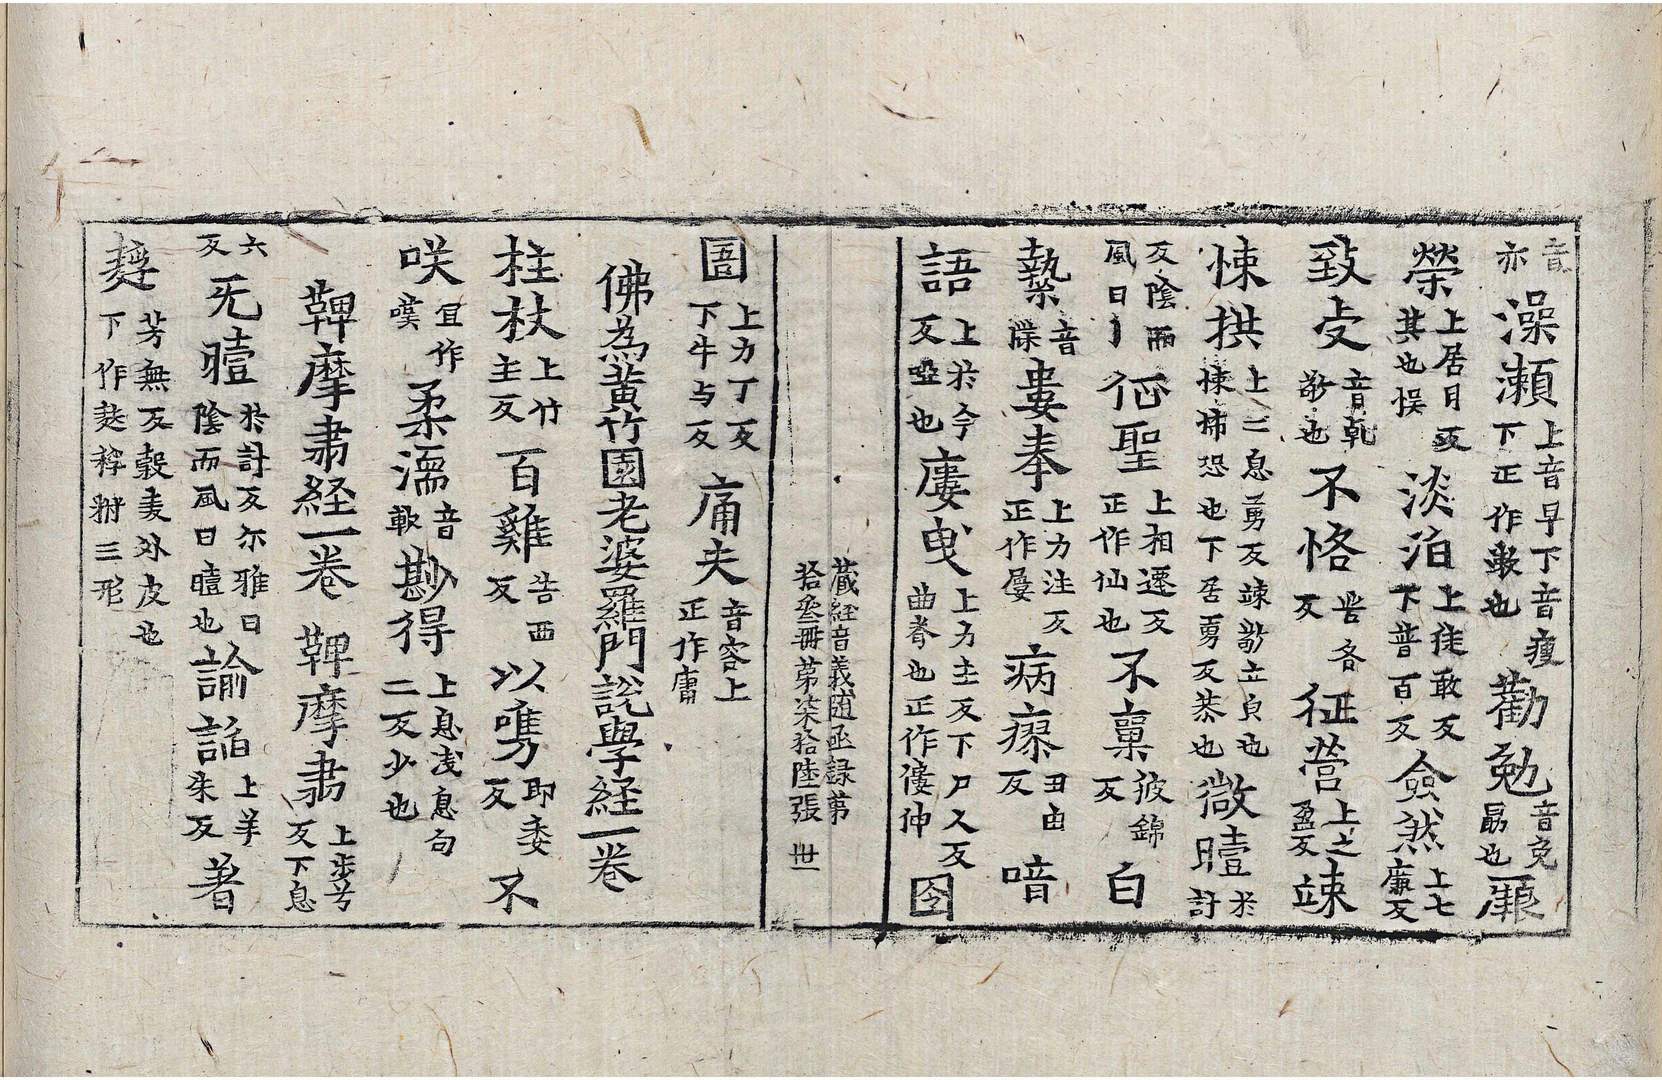 音亦澡瀬上音早下音瘦下正作漱也勸勉音免勗也㢠
榮上居月反其也悮淡泊上徒敢反下普百反僉然上七廉反
致㞐音乹敬也不恪苦各反征營上之盈反竦
悚拱上二息勇反竦敬立皃也悚怖恐也下居勇反恭也微曀於計
反陰而風曰丨征聖上相遷反正作仙也不稟彼錦反白
蓻音牒婁奉上力注反正作屢病瘳丑由反喑
語上於今反啞也㢃曵上力主反下尸人反曲脊也正作僂伸囹
藏経音義随函録第
拾叁冊第柒拾陸張 丗一
圄上力丁反下牛与反㾄夫音容上正作庸
佛為黄竹園老婆羅門說學経一卷
柱杖上竹主反百雞告西反以㗻即委反不
咲宜作嘆柔濡音軟尠得上息浅息句二反少也
鞞摩肅経一卷 鞞摩肅上步兮反下息
六反旡曀於計反尔雅曰陰而風曰曀也諭䛡上羊朱反著
䴸芳無反穀麦外皮也下作䴸稃㭼三形